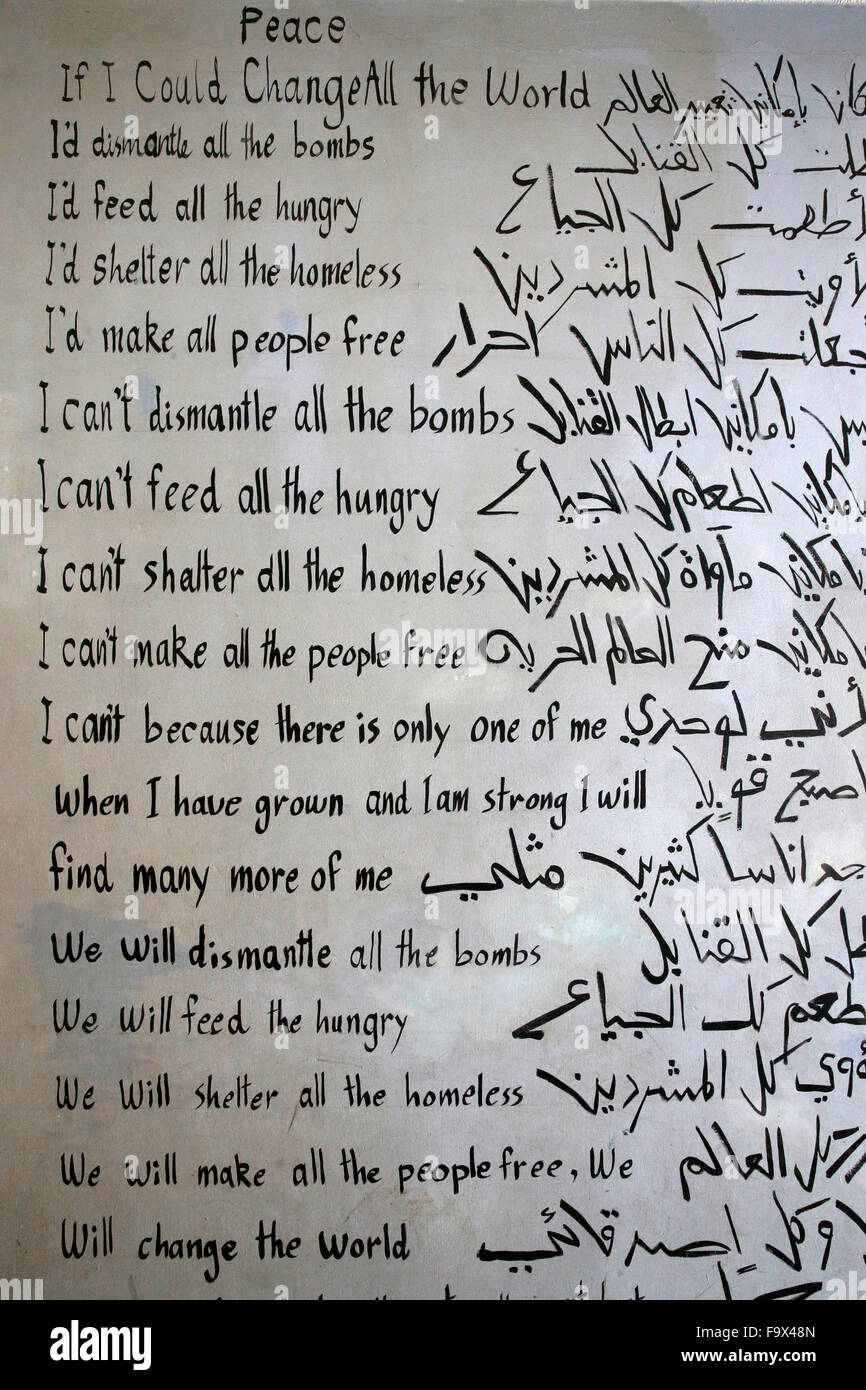 Peace
If I Could Change All the World بإمكاني تغيير العالم
I'd dismantle all the bombs كل القنابل
I'd feed all the hungry لأطعمت كل الجياع
I'd shelter all the homeless لأويت كل المشردين
I'd make all people free جعلت كل الناس احرار
I can't dismantle all the bombs بامكاني ابطال القنابل
I can't feed all the hungry بامكاني اطعام كل الجياع
I can't shalter all the homeless بامكاني مأواة كل المشردين
I can't make all the people free بامكاني منح العالم الحرية
I can't because there is only one of me لأنني لوحدي
when I have grown and I am strong I will اصبح قويا
find many more of me اناسا كثيرين مثلي
We will dismantle all the bombs كل القنابل
We will feed the hungry كل الجياع
We will shelter all the homeless كل المشردين
We will make all the people free, We العالم
Will change the world
alamy stock photo
F9X48N
www.alamy.com